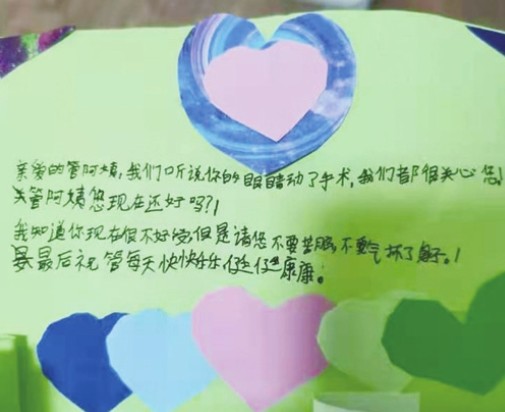 亲爱的管阿姨，我们听说你的眼睛动了手术，我们都很关心您！
管阿姨您现在还好吗？！
我知道你现在很不好受，但是请您不要 不要气坏了 ！
最后祝管每天快快乐乐 健康康。